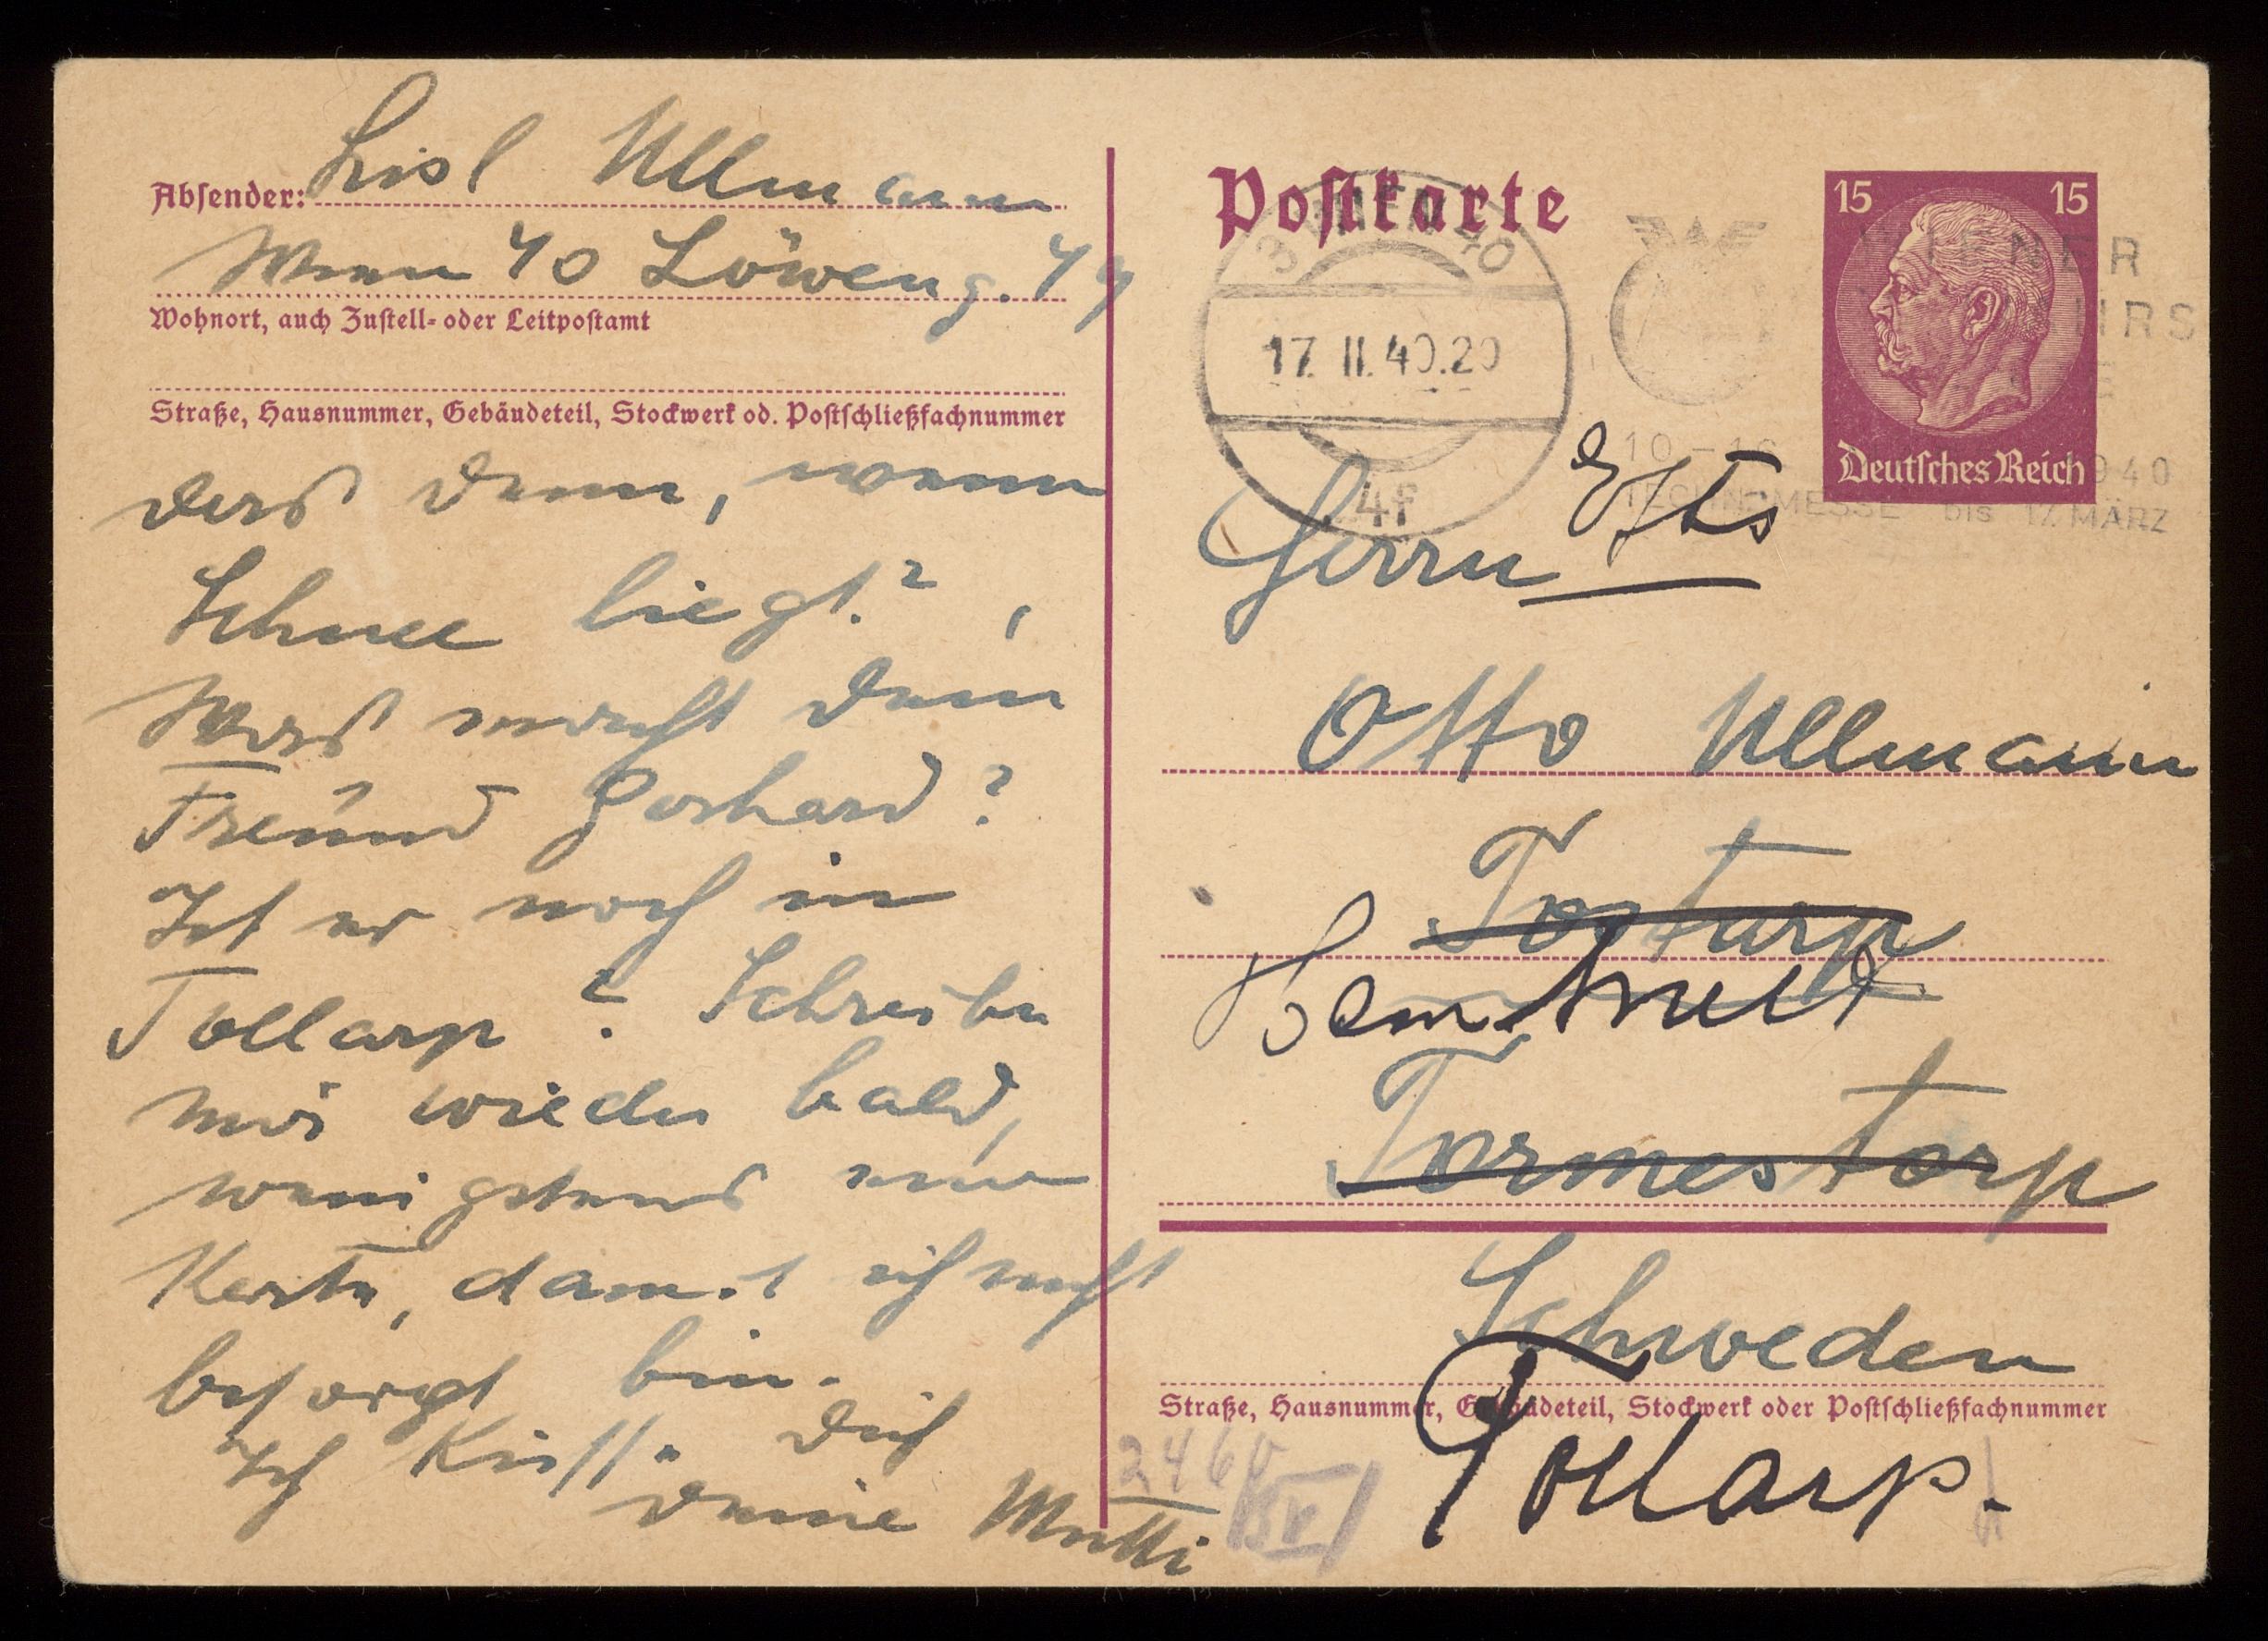 Absender: Lisl Ullmann
Wien 40 Löweng. 49
Wohnort, auch Zustell- oder Leitpostamt
Straße, Hausnummer, Gebäudeteil, Stockwerk od. Postschließfachnummer
das denn, wenn
Schnee liegt?
Was macht dein
Freund Gerhard?
Ist er noch in
Tollarp? Schreibe
mir wieder bald,
wenigstens eine
Karte, damit ich nicht
besorgt bin.
Ich küsse dich
deine Mutti
Postkarte
3 WIEN 40
17. II. 40. 20
4f
WIENER
10-16 1940
TECHN. MESSE bis 17. MÄRZ
15 15
Deutsches Reich
Herrn
Otto Ullmann
Tostarp
Tormestorp
Schweden
Straße, Hausnummer, Gebäudeteil, Stockwerk oder Postschließfachnummer
Tollarp.